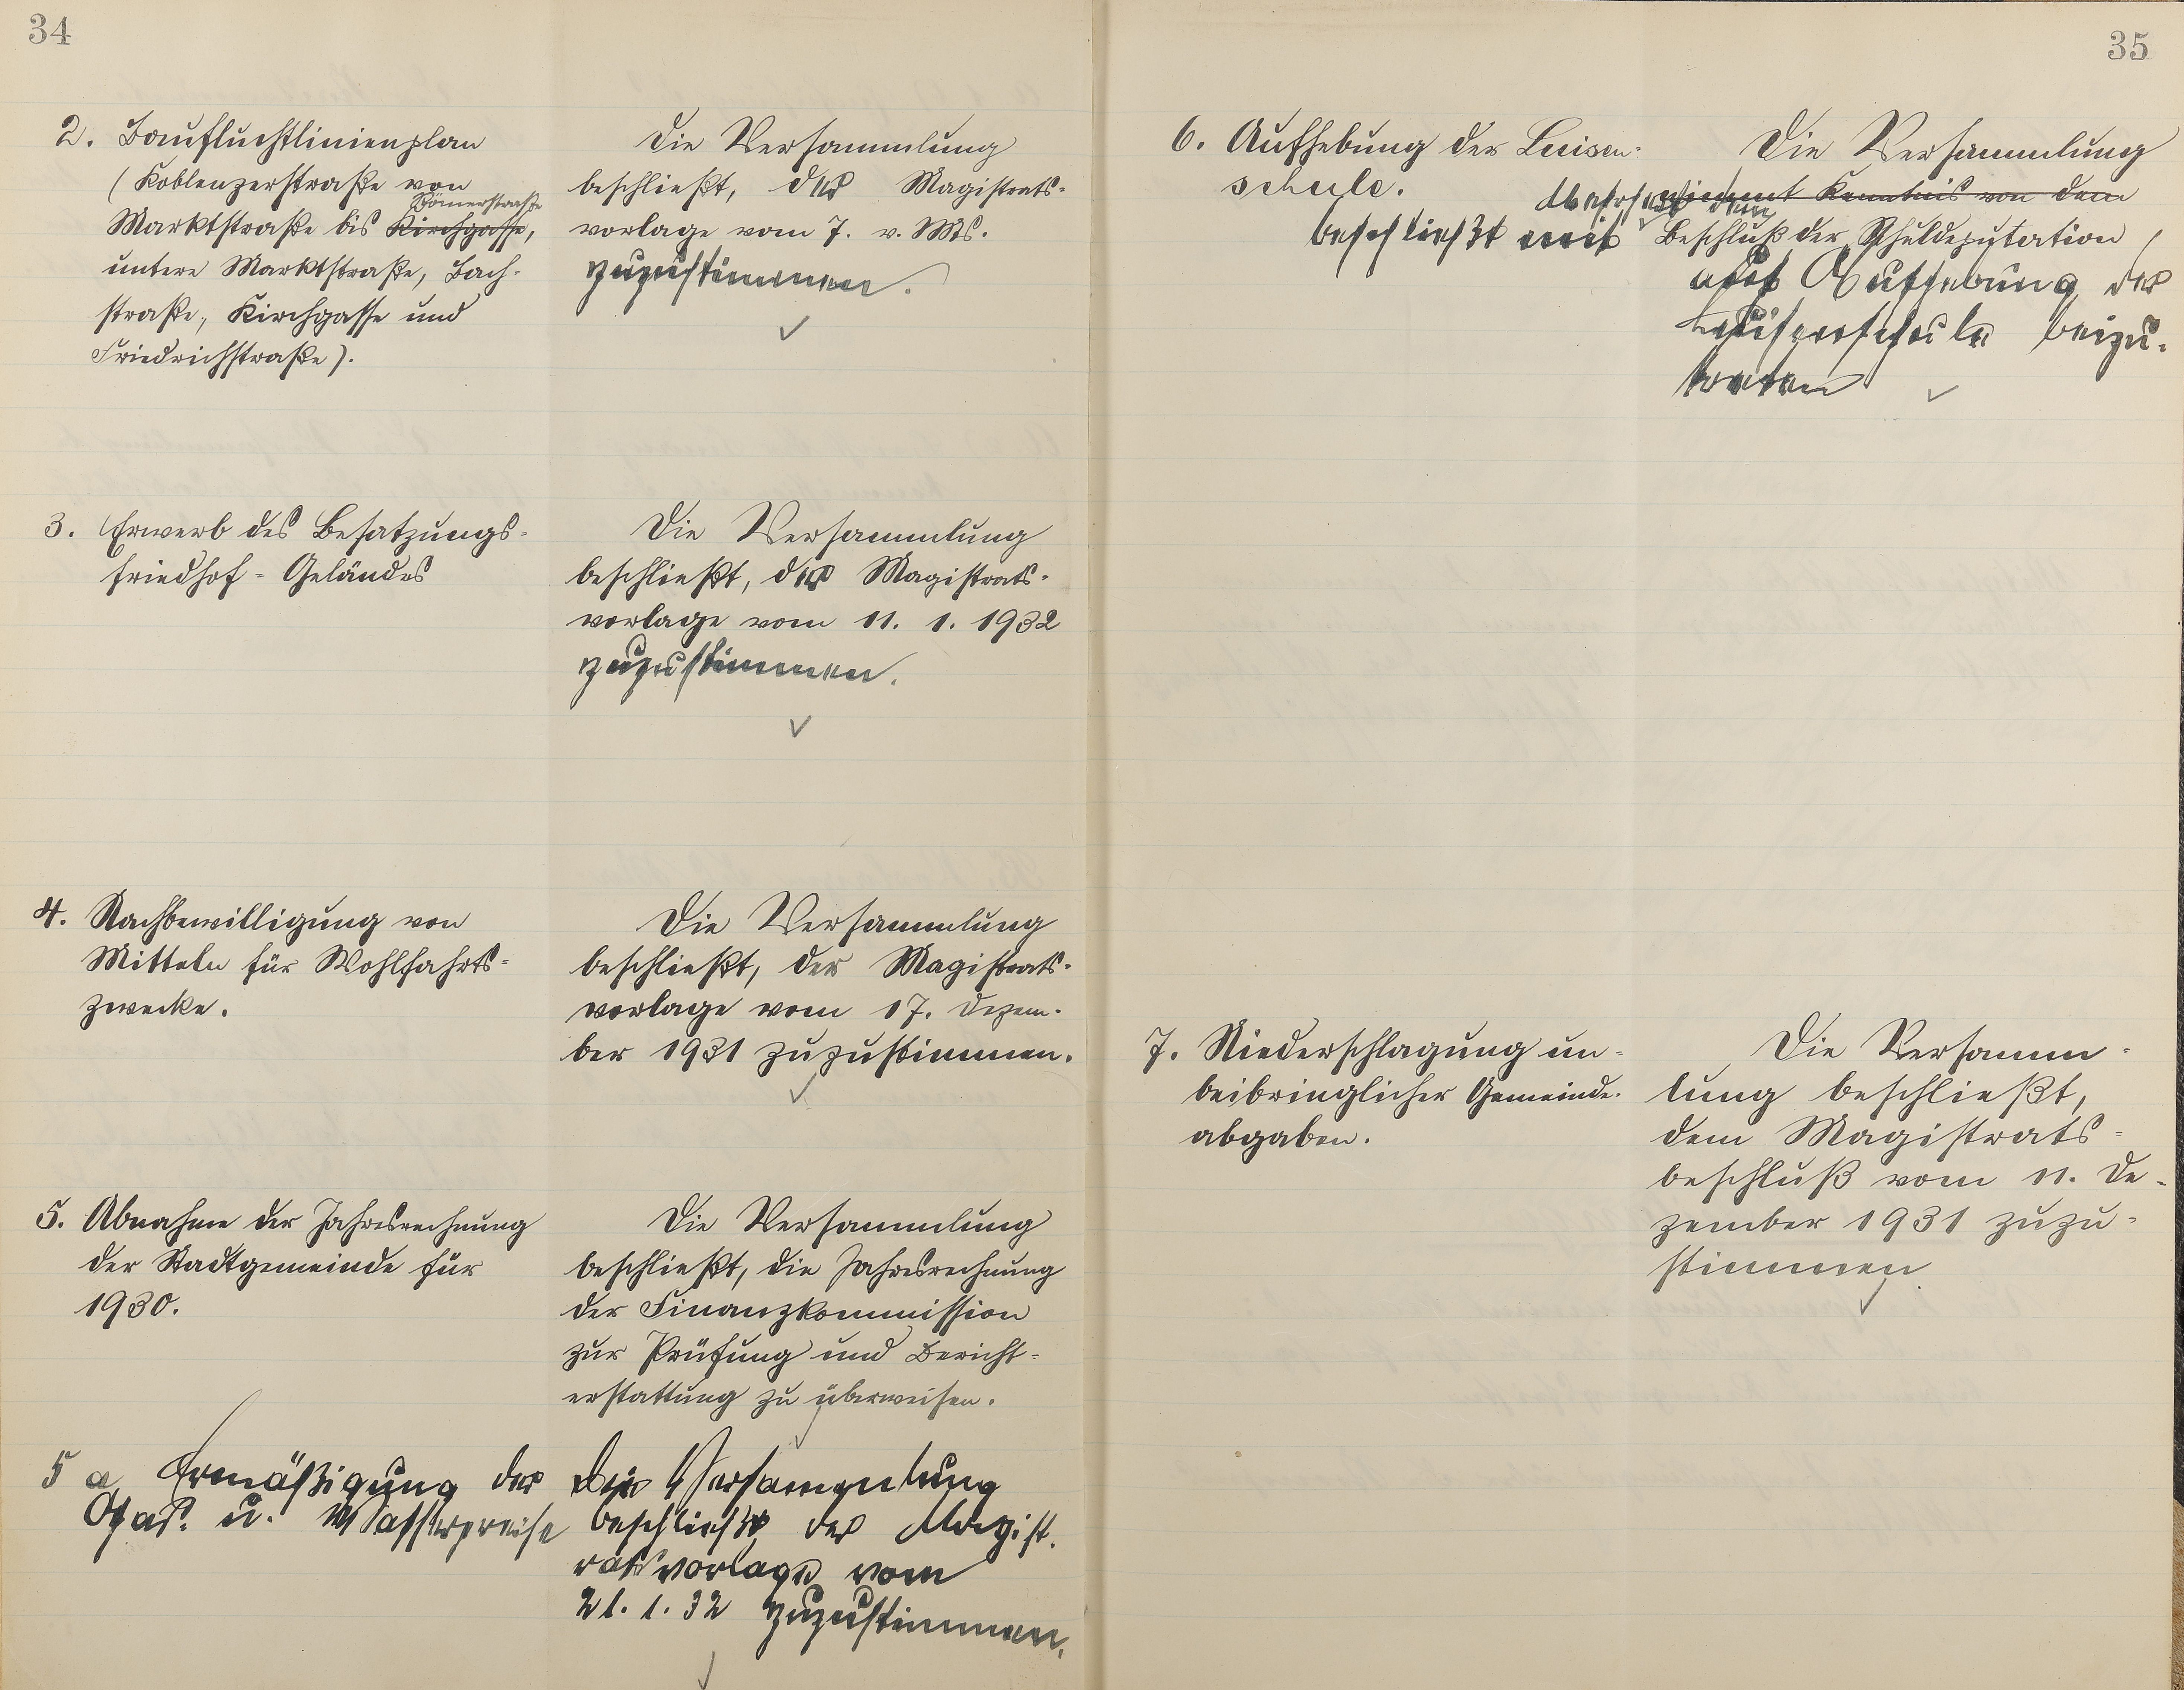 34
2. Baufluchtlinienplan
(Koblenzerstraße von
Römerstraße
Marktstraße bis Kirchgasse,
untere Marktstraße, Bach-
straße, Kirchgasse und
Friedrichstraße).
Die Versammlung
beschließt, der Magistrats-
vorlage vom 7. v. Mts.
zuzustimmen.
3. Erwerb des Besatzungs-
friedhof-Geländes
Die Versammlung
beschließt, der Magistrats-
vorlage vom 11. 1. 1932
zuzustimmen.
4. Nachbewilligung von
Mitteln für Wohlfahrts-
zwecke.
Die Versammlung
beschließt, der Magistrats-
vorlage vom 17. Dezem-
ber 1931 zuzustimmen.
5. Abnahme der Jahresrechnung
der Stadtgemeinde für
1930.
Die Versammlung
beschließt, die Jahresrechnung
der Finanzkommission
zur Prüfung und Bericht-
erstattung zu überweisen.
5 a Ermäßigung der
Gas- u. Wasserpreise
Die Versammlung
beschließt der Magist-
ratsvorlage vom
21. 1. 32 zuzustimmen.
35
6. Aufhebung der Luisen-
schule.
Die Versammlung
nimmt Kenntnis von dem
beschließt mit dem
Beschluß der Schuldeputation
auf Aufhebung der
Luisenschule beizu-
treten
7. Niederschlagung un-
beibringlicher Gemeinde-
abgaben.
Die Versamm-
lung beschließt,
dem Magistrats-
beschluß vom 11. De-
zember 1931 zuzu-
stimmen.